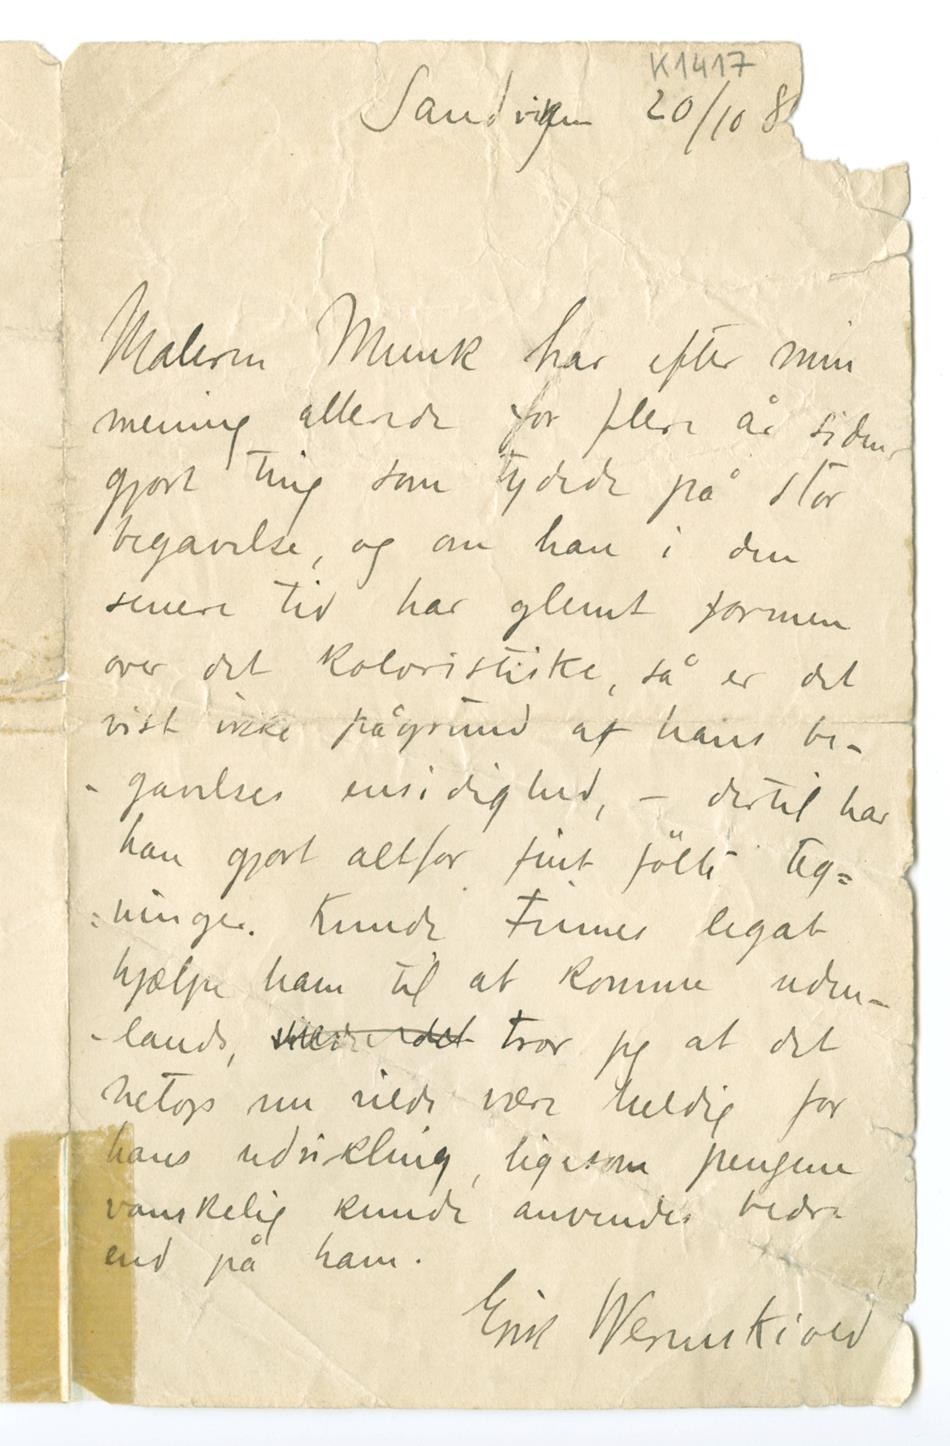 K1417
Sandviken 20/10 8
Maleren Munk har efter min
mening allerede for flere år siden
gjort ting som tydede på stor
begavelse, og om han i den
senere tid har glemt formen
over det koloristiske, så er det
vist ikke pågrund af hans be-
- gavelses ensidighed, – dertil har
han gjort altfor fint følte teg=
=ninger. Kunde Finnes legat
hjælpe ham til at komme uden-
-lands, vilde det tror jeg at det
netop nu vilde være heldig for
hans udvikling, ligesom pengene
vanskelig kunde anvendes bedre
end på ham.
Erik Werenskiold